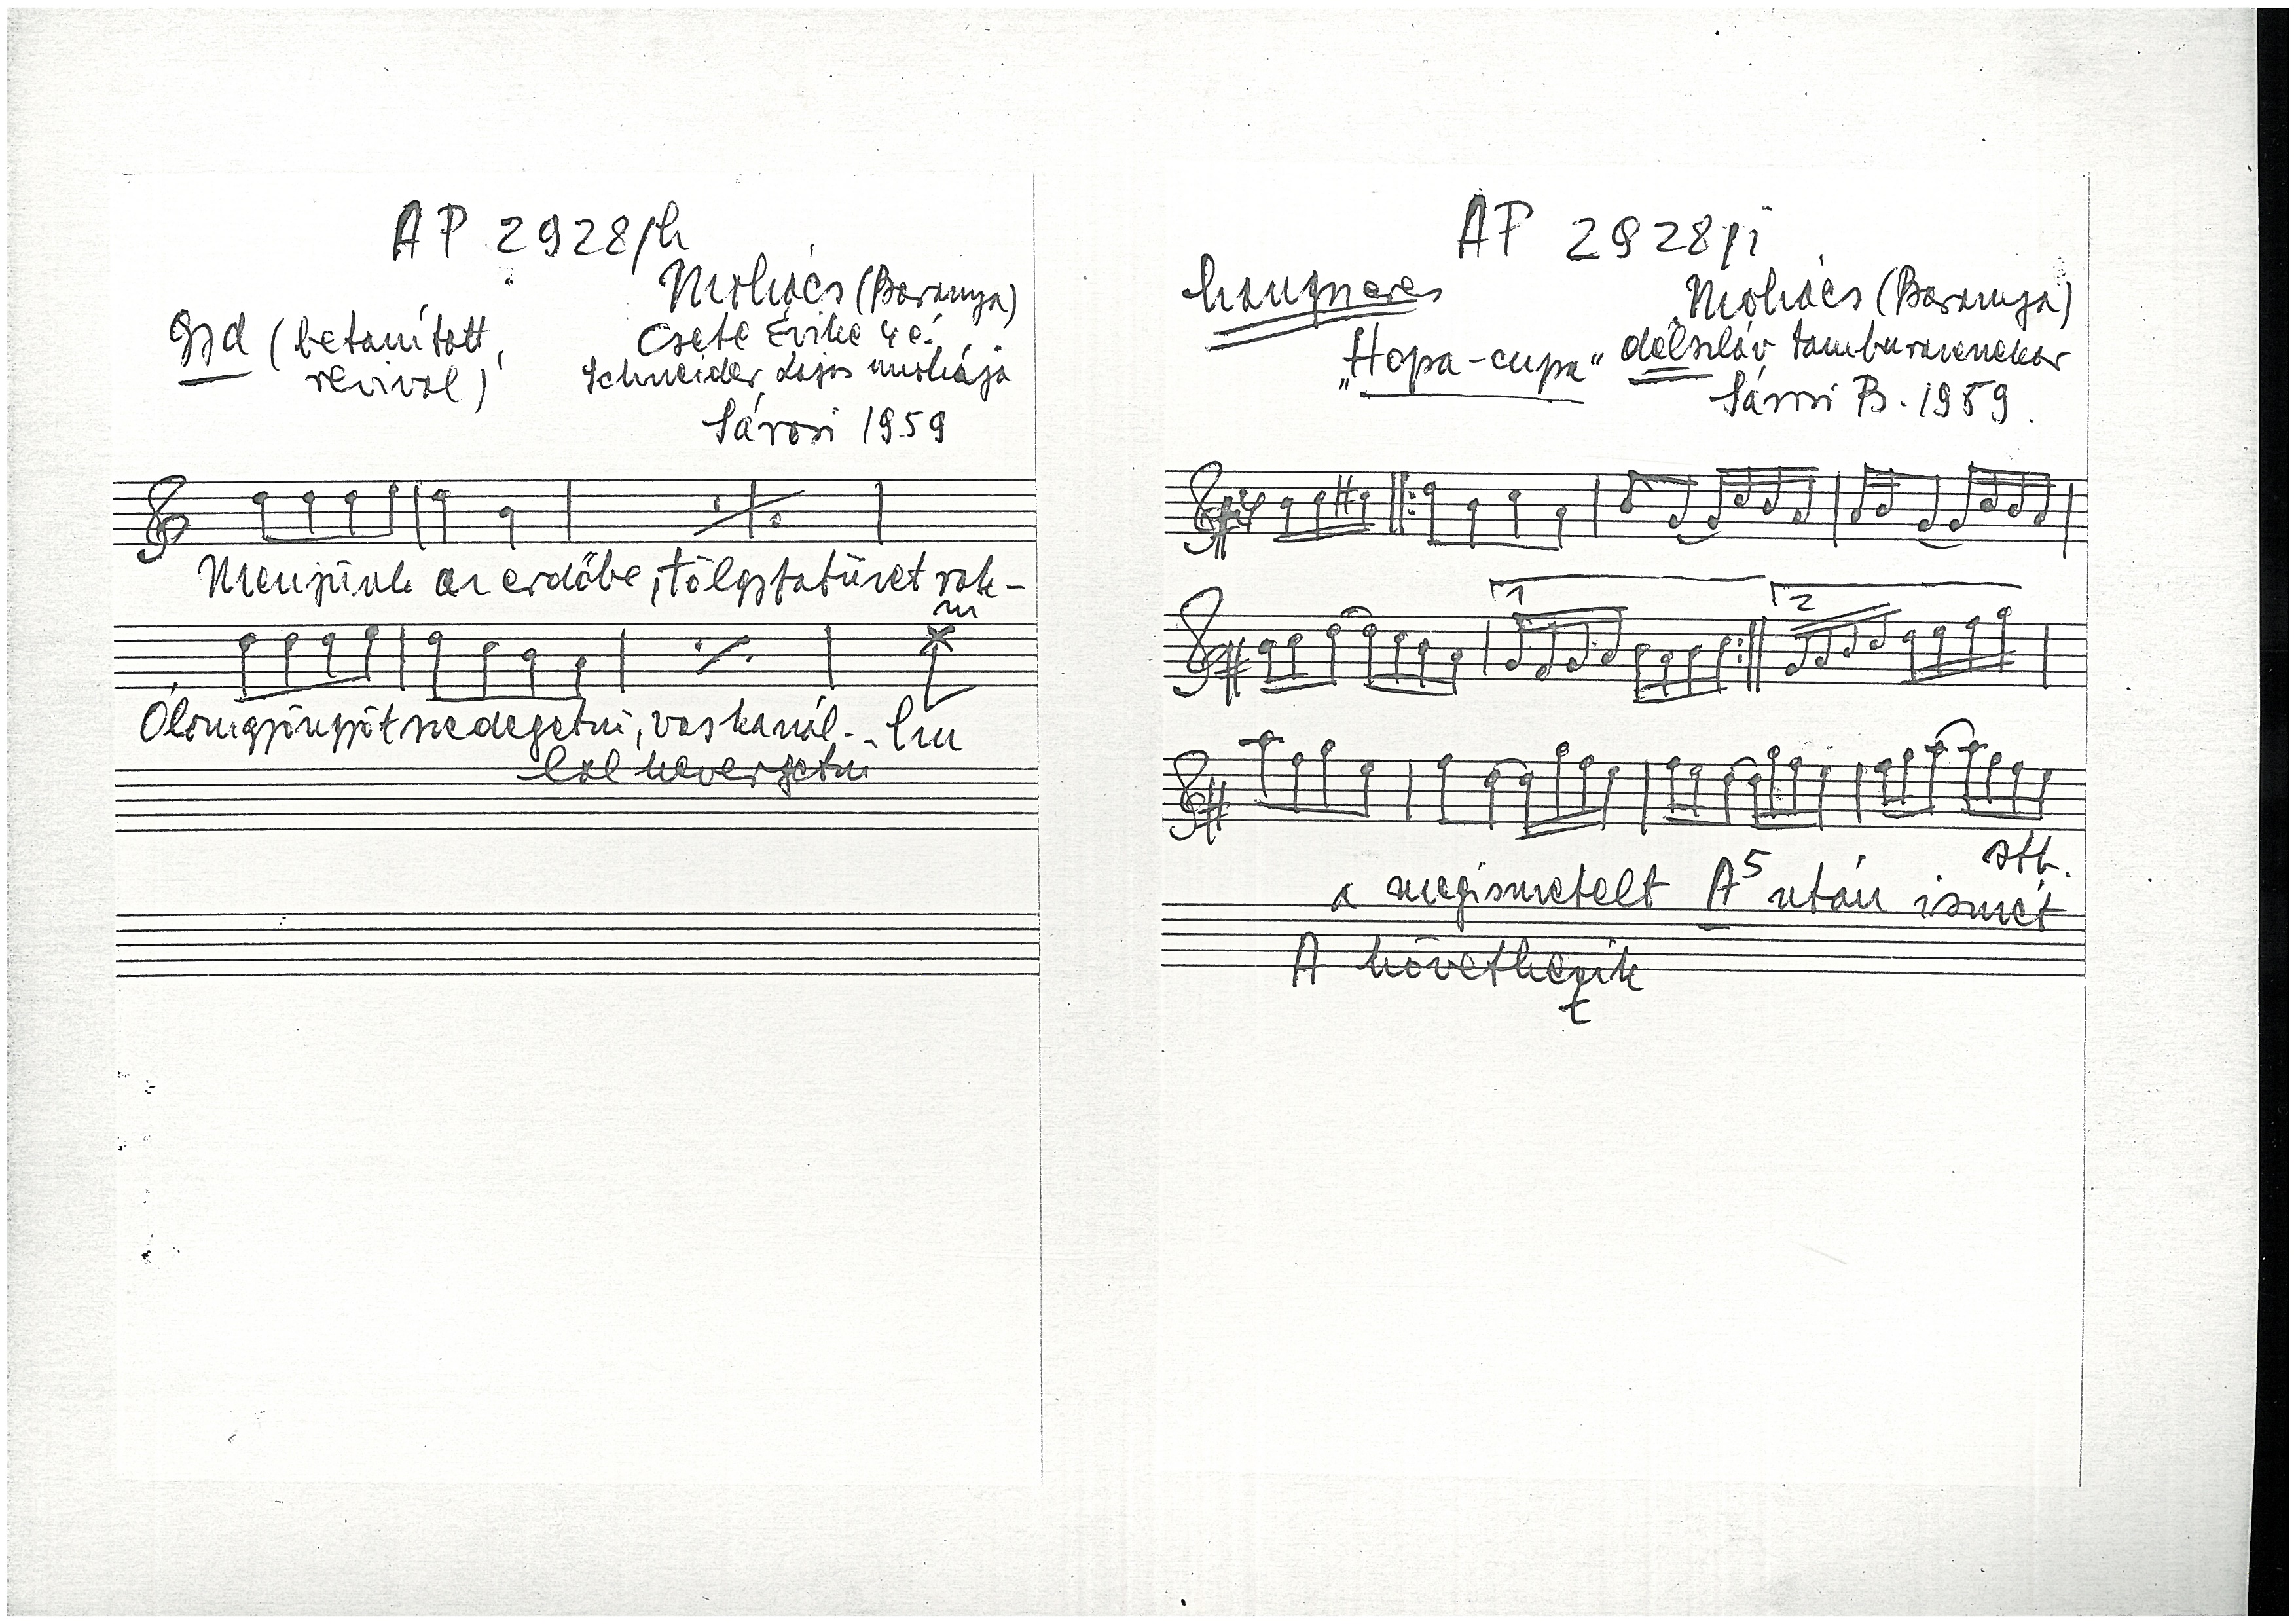 AP 2928/h
Mohács (Baranya)
Gyd (betanított, Csete Évike 4 é.
revival) Schneider Lajos unokája
Sárosi 1959
Menjünk az erdőbe, tölgyfatüzet rak-
ni
Ólomgyöngyöt szedegetni, vaskanál-
lal kevergetni
AP 2928/i
hangszeres Mohács (Baranya)
"Hopa-cupa" délszláv tamburazenekar
Sárosi B. 1959.
1 2
stb.
a megismételt A5 után ismét
A következik